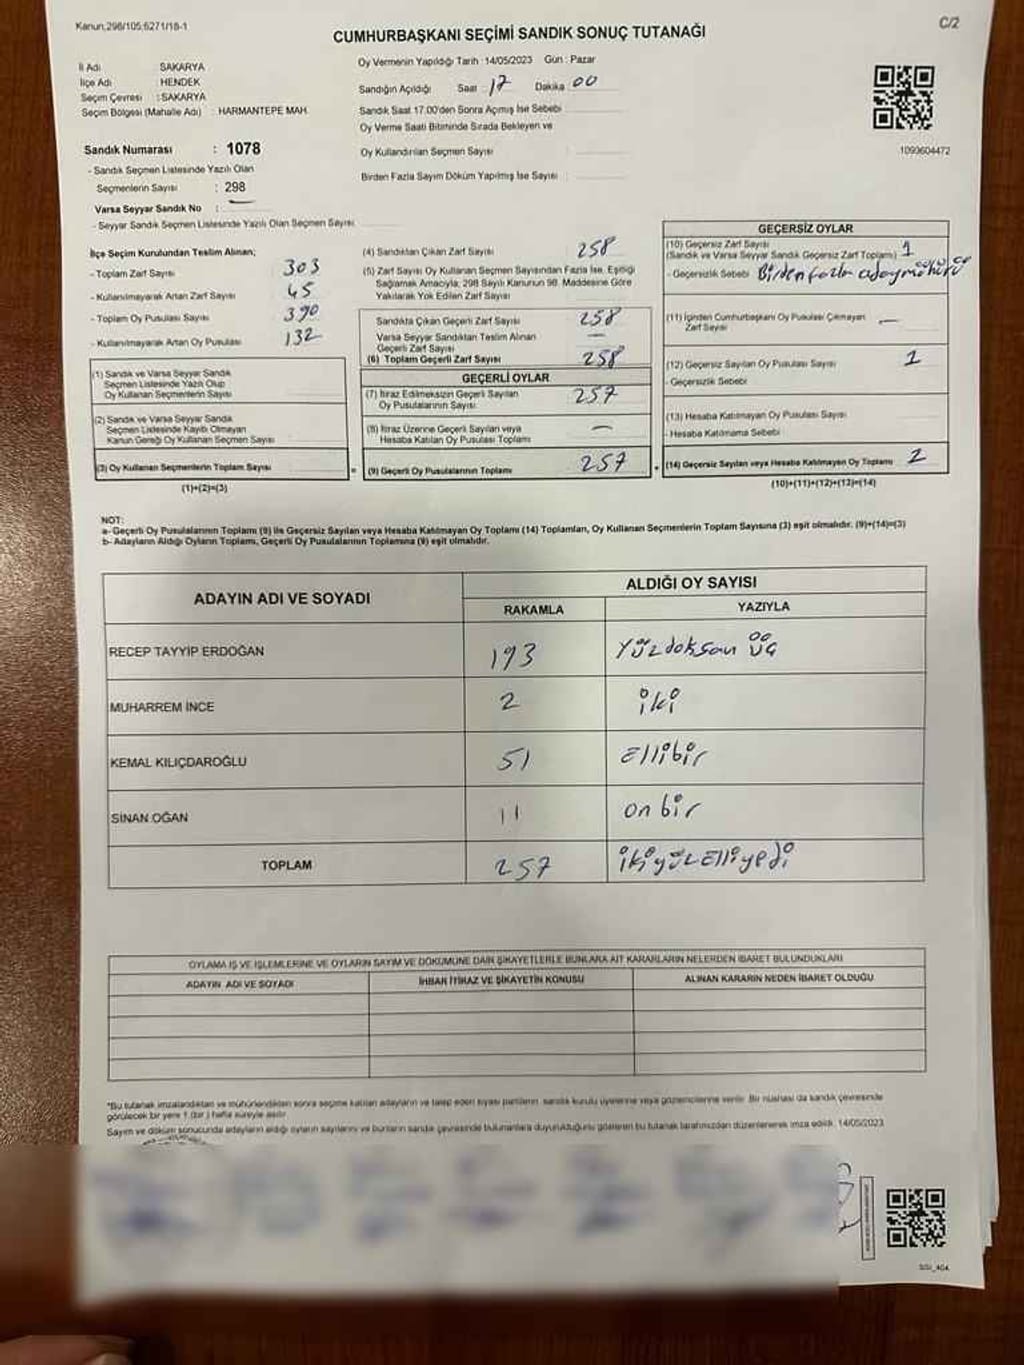 Kanun:298/105;6271/18-1
C/2
CUMHURBAŞKANI SEÇİMİ SANDIK SONUÇ TUTANAĞI
İl Adı : SAKARYA
İlçe Adı : HENDEK
Seçim Çevresi : SAKARYA
Seçim Bölgesi (Mahalle Adı) : HARMANTEPE MAH.
Oy Vermenin Yapıldığı Tarih : 14/05/2023 Gün : Pazar
Sandığın Açıldığı Saat : 17 Dakika : 00
Sandık Saat 17.00'den Sonra Açımış İse Sebebi
Oy Verme Saati Bitiminde Sırada Bekleyen ve
Oy Kullandırılan Seçmen Sayısı :
Birden Fazla Sayım Döküm Yapılmış İse Sayısı :
1090604472
Sandık Numarası : 1078
- Sandık Seçmen Listesinde Yazılı Olan
Seçmenlerin Sayısı : 298
Varsa Seyyar Sandık No : —
- Seyyar Sandık Seçmen Listesinde Yazılı Olan Seçmen Sayısı
İlçe Seçim Kurulundan Teslim Alınan;
- Toplam Zarf Sayısı 303
- Kullanılmayarak Artan Zarf Sayısı 45
- Toplam Oy Pusulası Sayısı 390
- Kullanılmayarak Artan Oy Pusulası 132
(1) Sandık ve Varsa Seyyar Sandık
Seçmen Listesinde Yazılı Olup
Oy Kullanan Seçmenlerin Sayısı
(2) Sandık ve Varsa Seyyar Sandık
Seçmen Listesinde Kayıtlı Olmayan
Kanun Gereği Oy Kullanan Seçmen Sayısı
(3) Oy Kullanan Seçmenlerin Toplam Sayısı
(1)+(2)=(3)
(4) Sandıktan Çıkan Zarf Sayısı 258
(5) Zarf Sayısı Oy Kullanan Seçmen Sayısından Fazla İse, Eşitliği
Sağlamak Amacıyla; 298 Sayılı Kanunun 98. Maddesine Göre
Yakılarak Yok Edilen Zarf Sayısı
Sandıkta Çıkan Geçerli Zarf Sayısı 258
Varsa Seyyar Sandıktan Teslim Alınan
Geçerli Zarf Sayısı —
(6) Toplam Geçerli Zarf Sayısı 258
GEÇERLİ OYLAR
(7) İtiraz Edilmeksizin Geçerli Sayılan
Oy Pusulalarının Sayısı 257
(8) İtiraz Üzerine Geçerli Sayılan veya
Hesaba Katılan Oy Pusulası Toplamı —
= (9) Geçerli Oy Pusulalarının Toplamı 257
GEÇERSİZ OYLAR
(10) Geçersiz Zarf Sayısı
(Sandık ve Varsa Seyyar Sandık Geçersiz Zarf Toplamı) 1
- Geçersizlik Sebebi Birden fazla aday mühürü
(11) İçinden Cumhurbaşkanı Oy Pusulası Çıkmayan
Zarf Sayısı —
(12) Geçersiz Sayılan Oy Pusulası Sayısı 1
- Geçersizlik Sebebi
(13) Hesaba Katılmayan Oy Pusulası Sayısı
- Hesaba Katılmama Sebebi
+ (14) Geçersiz Sayılan veya Hesaba Katılmayan Oy Toplamı 2
(10)+(11)+(12)+(13)=(14)
NOT:
a- Geçerli Oy Pusulalarının Toplamı (9) ile Geçersiz Sayılan veya Hesaba Katılmayan Oy Toplamı (14) Toplamları, Oy Kullanan Seçmenlerin Toplam Sayısına (3) eşit olmalıdır. (9)+(14)=(3)
b- Adayların Aldığı Oyların Toplamı, Geçerli Oy Pusulalarının Toplamına (9) eşit olmalıdır.
ADAYIN ADI VE SOYADI
ALDIĞI OY SAYISI
RAKAMLA YAZIYLA
RECEP TAYYİP ERDOĞAN 193 Yüzdoksan üç
MUHARREM İNCE 2 iki
KEMAL KILIÇDAROĞLU 51 Ellibir
SİNAN OĞAN 11 on bir
TOPLAM 257 ikiyüzElliyedi
OYLAMA İŞ VE İŞLEMLERİNE VE OYLARIN SAYIM VE DÖKÜMÜNE DAİR ŞİKAYETLERLE BUNLARA AİT KARARLARIN NELERDEN İBARET BULUNDUKLARI
ADAYIN ADI VE SOYADI İHBAR İTİRAZ VE ŞİKAYETİN KONUSU ALINAN KARARIN NEDEN İBARET OLDUĞU
*Bu tutanak imzalandıktan ve mühürlendikten sonra seçime katılan adayların ve talep eden siyasi partilerin sandık kurulu üyelerine veya gözlemcilerine verilir. Bir nüshası da sandık çevresinde
görülecek bir yere 1 (bir) hafta süreyle asılır.
Sayım ve döküm sonucunda adayların aldığı oyların sayılarını ve bunların sandık çevresinde bulunanlara duyurulduğunu gösteren bu tutanak tarafımızdan düzenlenerek imza edildi. 14/05/2023